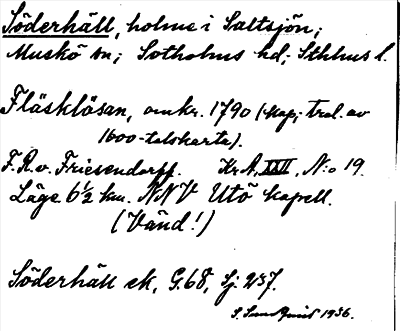 Söderhäll, holme i Saltsjön;
Muskö sn; Sotholms hd; Sthlms l.
Fläsklösan, omkr. 1790 (kop; trol. av
1600-talskarta).
F. R. v. Friesendorff. Kr A, XXVI, N:o 19.
Läge 6½ km. NNV Utö kapell.
(Vänd!)
Söderhäll ek, G.68, Sj 237.
S. Sundquist 1936.